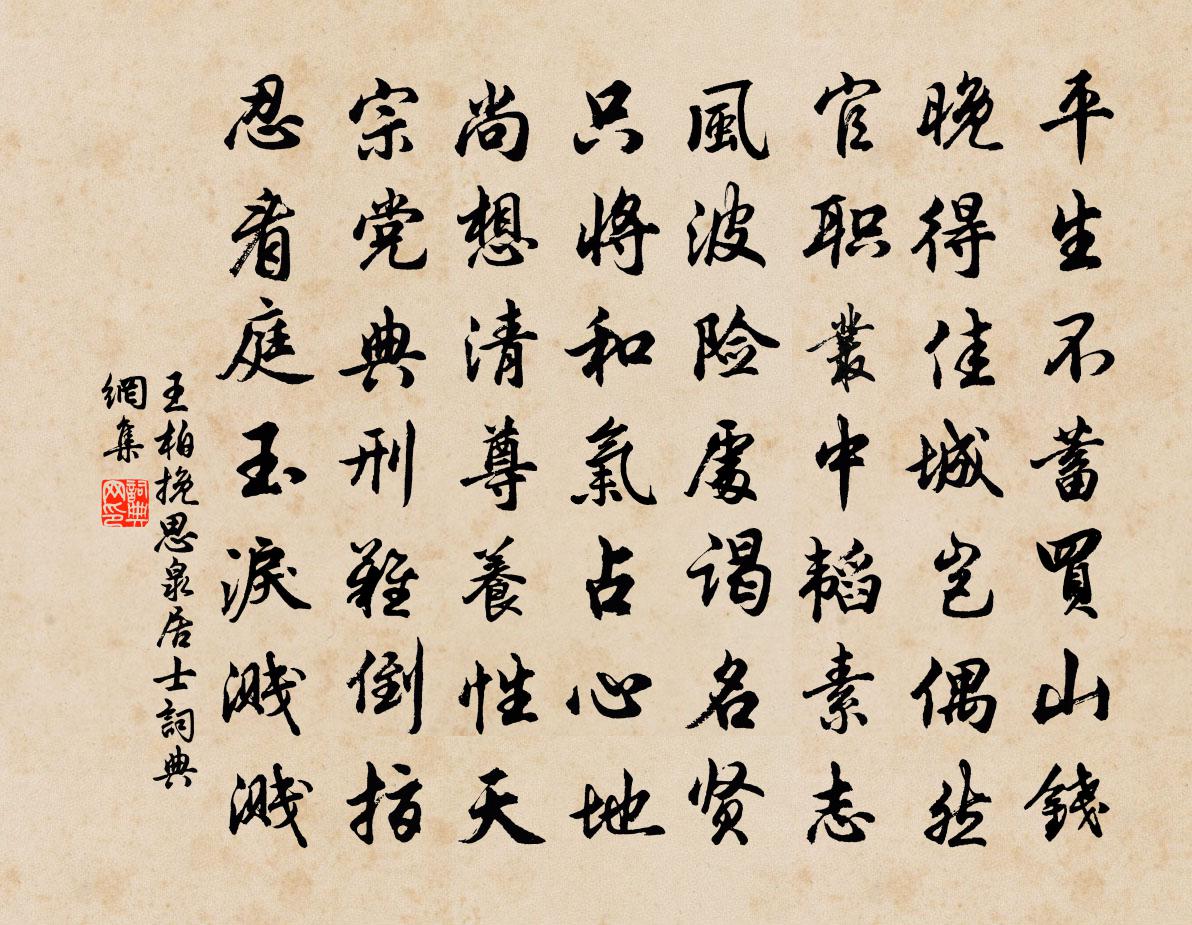 平生不蓄買山錢
晚得佳城豈偶然
官职叢中韬素志
風波险處谒名贤
只將和氣占心地
尚想清尊養性天
宗党典刑難倒指
忍看庭玉淚濺濺
王柏挽思泉居士詞典
網集
詞典
网印